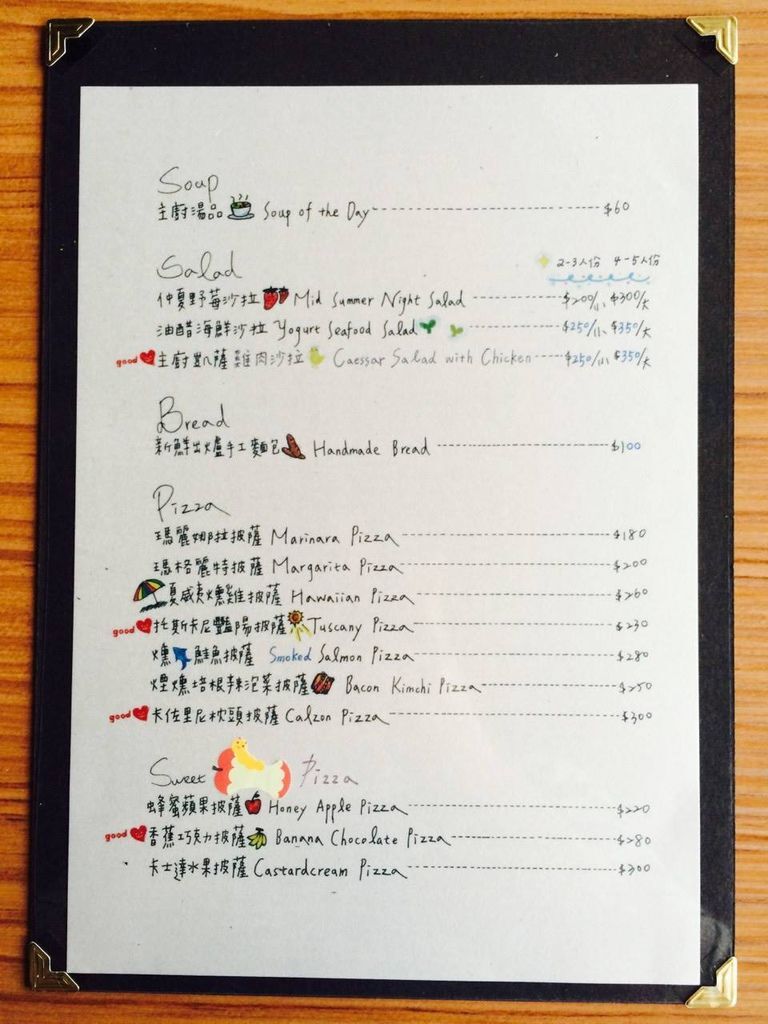 Soup
主廚湯品 Soup of the Day $60
Salad 2-3人份 4-5人份
仲夏野莓沙拉 Mid Summer Night Salad $200/小 $300/大
油醋海鮮沙拉 Yogurt Seafood Salad $250/小 $350/大
good 主廚凱薩雞肉沙拉 Caessar Salad with Chicken $250/小 $350/大
Bread
新鮮出爐手工麵包 Handmade Bread $100
Pizza
瑪麗娜拉披薩 Marinara Pizza $180
瑪格麗特披薩 Margarita Pizza $200
夏威夷燻雞披薩 Hawaiian Pizza $260
good 托斯卡尼豔陽披薩 Tuscany Pizza $230
燻鮭魚披薩 Smoked Salmon Pizza $280
煙燻培根辣泡菜披薩 Bacon Kimchi Pizza $250
good 卡佐里尼枕頭披薩 Calzon Pizza $300
Sweet Pizza
蜂蜜蘋果披薩 Honey Apple Pizza $220
good 香蕉巧克力披薩 Banana Chocolate Pizza $280
卡士達水果披薩 Castardcream Pizza $300